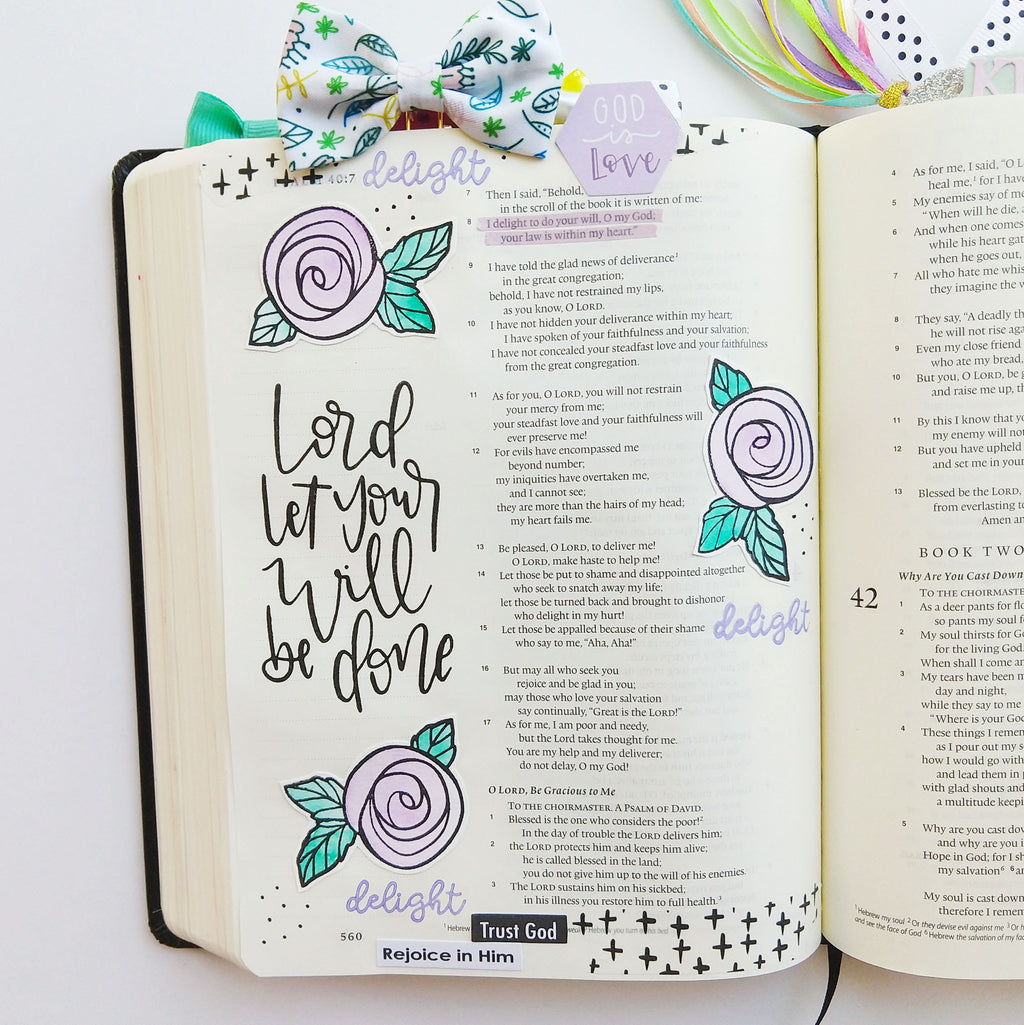 GOD
is
Love
KT
40:7
delight
7 Then I said, “Behold,
in the scroll of the book it is written of me:
8 I delight to do your will, O my God;
your law is within my heart.”
9 I have told the glad news of deliverance1
in the great congregation;
behold, I have not restrained my lips,
as you know, O LORD.
10 I have not hidden your deliverance within my heart;
I have spoken of your faithfulness and your salvation;
I have not concealed your steadfast love and your faithfulness
from the great congregation.
11 As for you, O LORD, you will not restrain
your mercy from me;
your steadfast love and your faithfulness will
ever preserve me!
12 For evils have encompassed me
beyond number;
my iniquities have overtaken me,
and I cannot see;
they are more than the hairs of my head;
my heart fails me.
13 Be pleased, O LORD, to deliver me!
O LORD, make haste to help me!
14 Let those be put to shame and disappointed altogether
who seek to snatch away my life;
let those be turned back and brought to dishonor
who delight in my hurt!
15 Let those be appalled because of their shame
who say to me, “Aha, Aha!”
16 But may all who seek you
rejoice and be glad in you;
may those who love your salvation
say continually, “Great is the LORD!”
17 As for me, I am poor and needy,
but the Lord takes thought for me.
You are my help and my deliverer;
do not delay, O my God!
O LORD, Be Gracious to Me
TO THE CHOIRMASTER. A PSALM OF DAVID.
1 Blessed is the one who considers the poor!2
In the day of trouble the LORD delivers him;
2 the LORD protects him and keeps him alive;
he is called blessed in the land;
you do not give him up to the will of his enemies.
3 The LORD sustains him on his sickbed;
in his illness you restore him to full health.3
Lord,
let your
will
be done
delight
delight
560
1 Hebrew
Trust God
Hebrew you turn all his bed
Rejoice in Him
4 As for me, I said, “O L
heal me,1 for I have
5 My enemies say of me
“When will he die, a
6 And when one comes
while his heart gat
when he goes out,
7 All who hate me whis
they imagine the w
8 They say, “A deadly th
he will not rise aga
9 Even my close friend
who ate my bread,
10 But you, O LORD, be g
and raise me up, th
11 By this I know that yo
my enemy will not
12 But you have upheld
and set me in your
13 Blessed be the LORD,
from everlasting to
Amen an
BOOK TWO
Why Are You Cast Down
42 TO THE CHOIRMASTE
1 As a deer pants for flo
so pants my soul f
2 My soul thirsts for Go
for the living God.
When shall I come an
3 My tears have been m
day and night,
while they say to me
“Where is your God
4 These things I remem
as I pour out my so
how I would go with
and lead them in p
with glad shouts and
a multitude keepi
5 Why are you cast dow
and why are you i
Hope in God; for I sh
my salvation6 6 an
My soul is cast down
therefore I remem
1 Hebrew my soul 2 Or they devise evil against me 3 Or h
and see the face of God 6 Hebrew the salvation of my fac